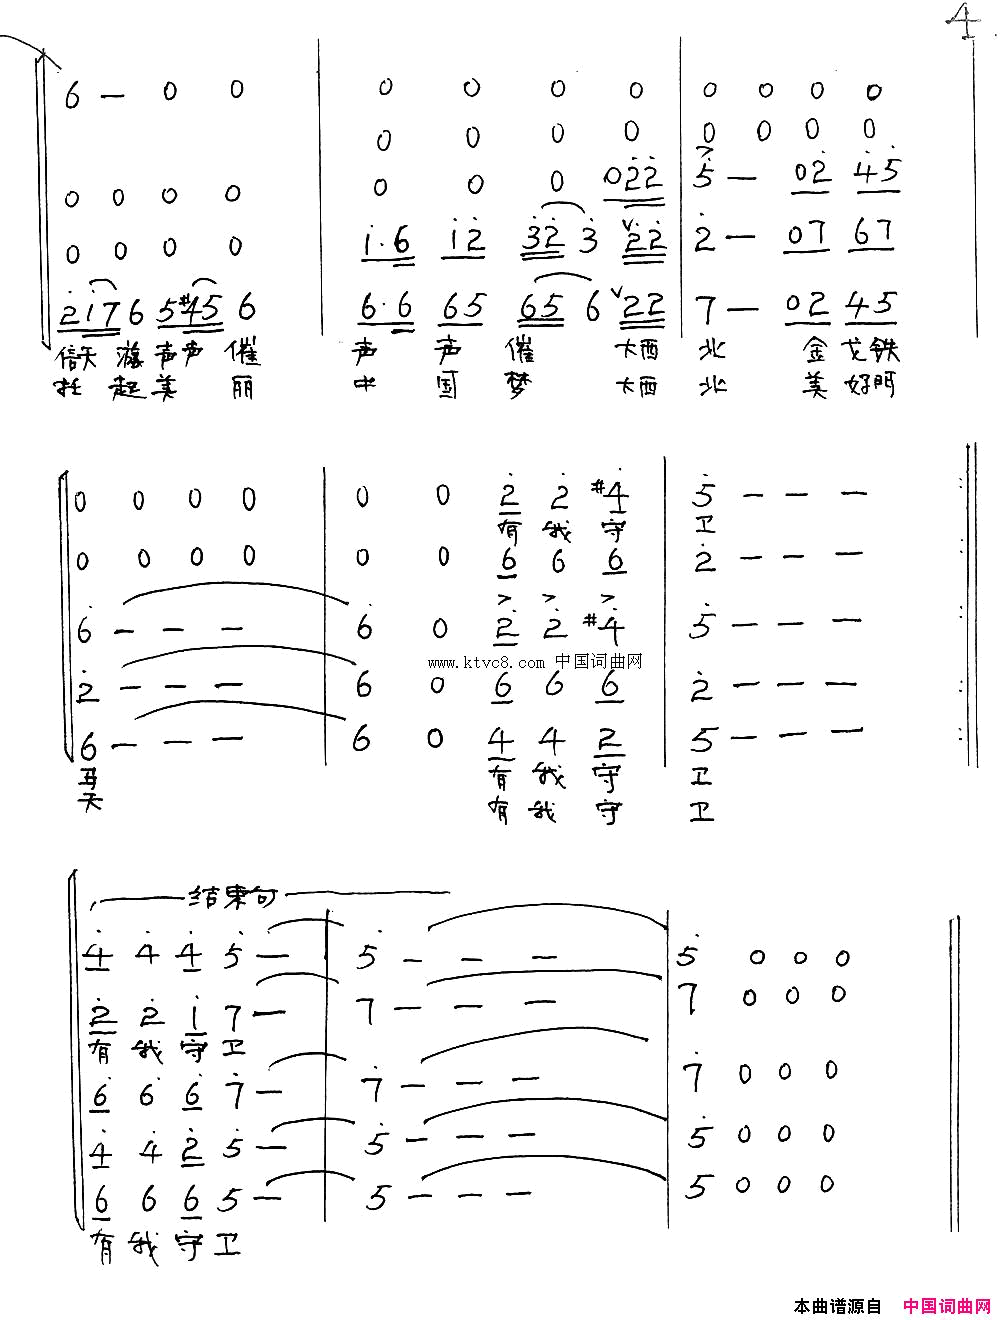 4
6 — 0 0 | 0 0 0 0 | 0 0 0 0
0 0 0 0 | 0 0 0 0
0 0 0 0 | 0 0 0 022 | 5 — 02 45
0 0 0 0 | 1·6 12 32 3 V22 | 2 — 07 67
217 6 5#45 6 | 6·6 65 65 6 V22 | 7 — 02 45
信天 游 声声 催 声 声 催 大西 北 金 戈铁
托 起 美 丽 中 国 梦 大西 北 美 好啊
0 0 0 0 | 0 0 2 2 #4 | 5 — — —
有 我 守 卫
0 0 0 0 | 0 0 6 6 6 | 2 — — —
> > >
6 — — — | 6 0 2 2 #4 | 5 — — —
www.ktvc8.com 中国词曲网
2 — — — | 6 0 6 6 6 | 2 — — —
6 — — — | 6 0 4 4 2 | 5 — — —
有 我 守 卫
有 我 守 卫
结束句
4 4 4 5 — | 5 — — — | 5 0 0 0
2 2 1 7 — | 7 — — — | 7 0 0 0
有 我 守 卫
6 6 6 7 — | 7 — — — | 7 0 0 0
4 4 2 5 — | 5 — — — | 5 0 0 0
6 6 6 5 — | 5 — — — | 5 0 0 0
有 我 守 卫
本曲谱源自 中国词曲网